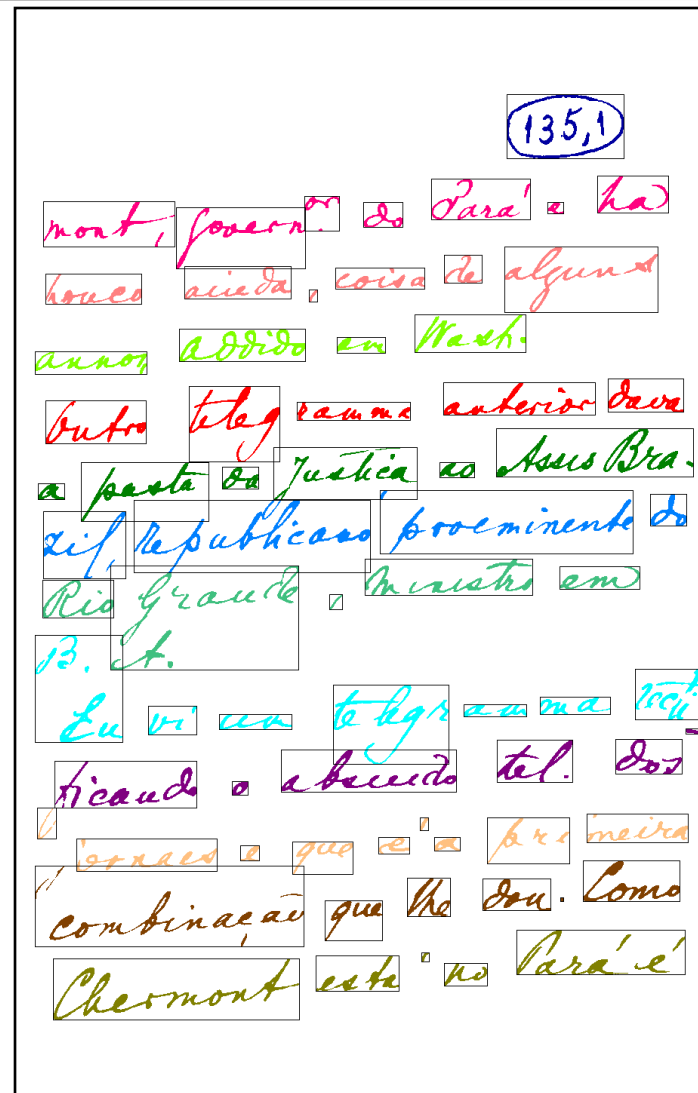 135,1
mont, governor. do Pará e ha
pouco ainda, coisa de alguns
annos addido em Wash.
Outro telegramma anterior dava
a pasta da Justica ao Assis Bra-
zil, republicano proeminente do
Rio Grande, Ministro em
B. A.
Eu vi um telegramma recti-
ficando o absurdo tel. dos
jornaes e que é a primeira
combinação que lhe dou. Como
Chermont está no Pará é